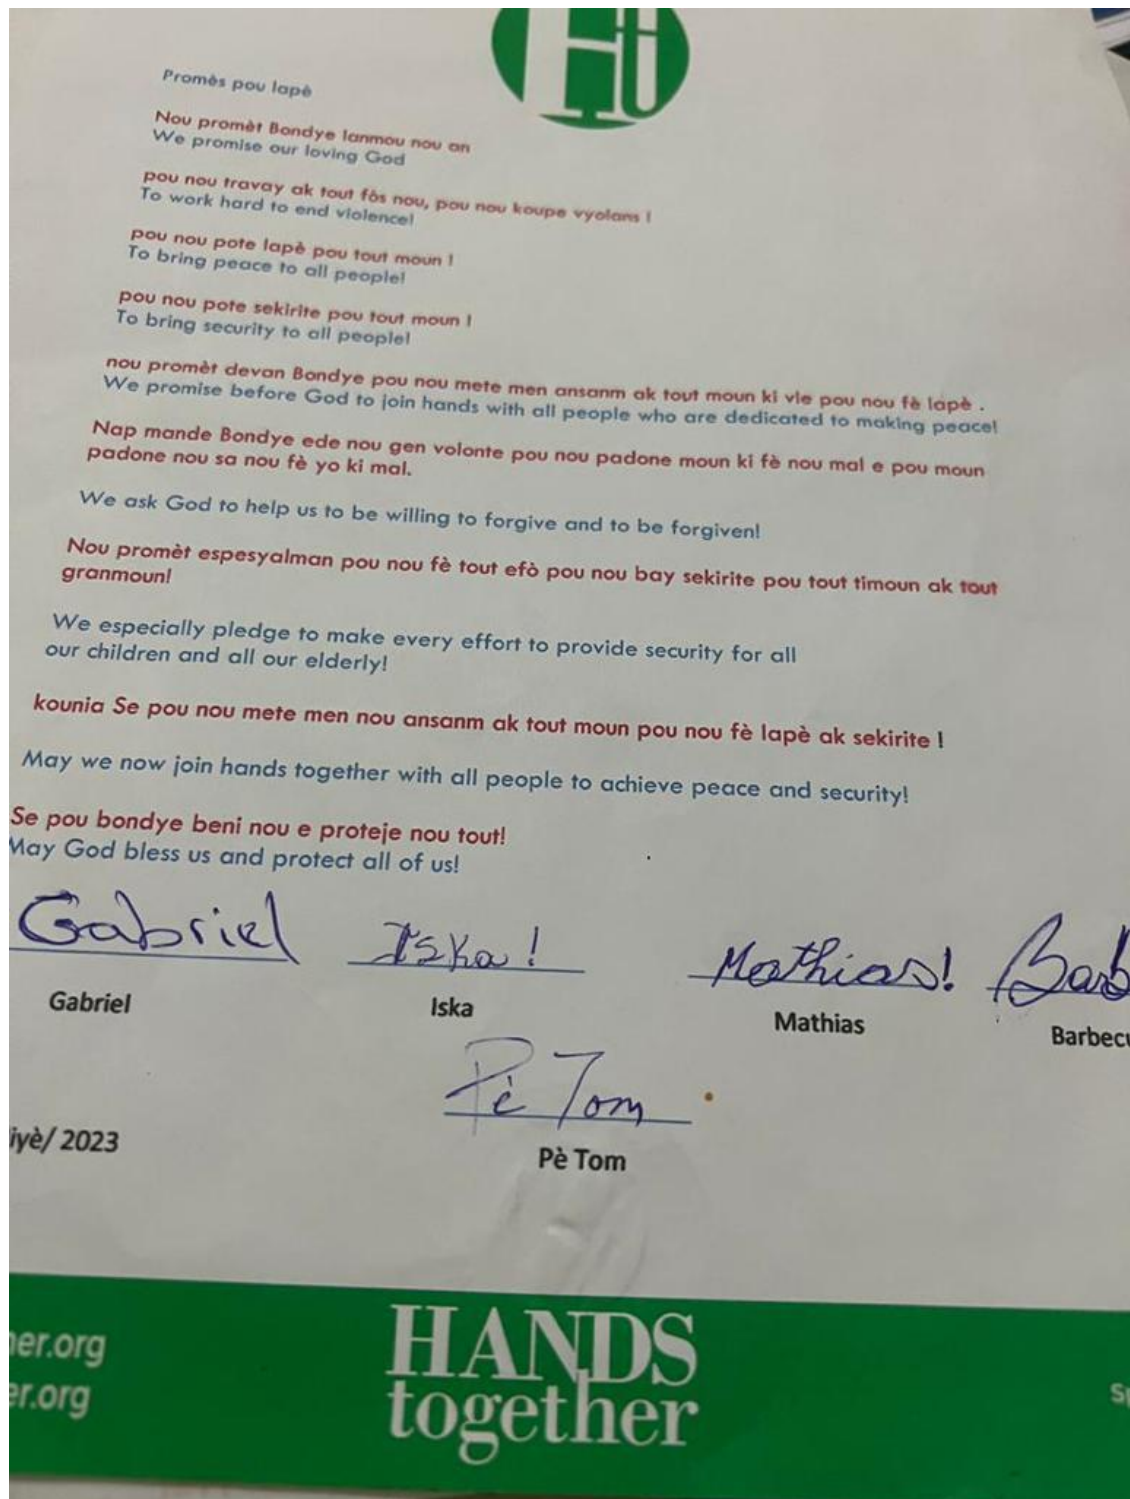 Ht
Promès pou lapè
Nou promèt Bondye lanmou nou an
We promise our loving God
pou nou travay ak tout fòs nou, pou nou koupe vyolans !
To work hard to end violence!
pou nou pote lapè pou tout moun !
To bring peace to all people!
pou nou pote sekirite pou tout moun !
To bring security to all people!
nou promèt devan Bondye pou nou mete men ansanm ak tout moun ki vle pou nou fè lapè .
We promise before God to join hands with all people who are dedicated to making peace!
Nap mande Bondye ede nou gen volonte pou nou padone moun ki fè nou mal e pou moun
padone nou sa nou fè yo ki mal.
We ask God to help us to be willing to forgive and to be forgiven!
Nou promèt espesyalman pou nou fè tout efò pou nou bay sekirite pou tout timoun ak tout
granmoun!
We especially pledge to make every effort to provide security for all
our children and all our elderly!
kounia Se pou nou mete men nou ansanm ak tout moun pou nou fè lapè ak sekirite !
May we now join hands together with all people to achieve peace and security!
Se pou bondye beni nou e proteje nou tout!
May God bless us and protect all of us!
Gabriel Iska! Mathias! Barb
Gabriel Iska Mathias Barbecu
Pè Tom
iyè/ 2023 Pè Tom
er.org HANDS
er.org together